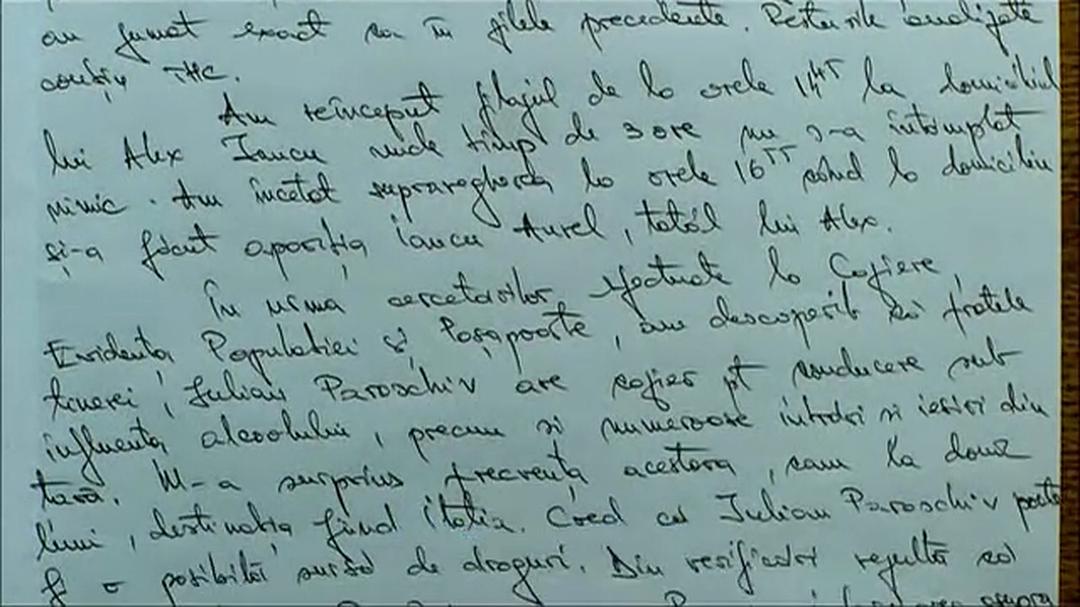 au fumat exact ca în zilele precedente. Resturile analizate
conțin THC.
Am reînceput filajul de la orele 14⁴⁵ la domiciliul
lui Alex Iancu unde timp de 3 ore nu s-a întâmplat
nimic. Am încetat supravegherea la orele 16⁵⁵ când la domiciliu
și-a făcut apariția Iancu Aurel, tatăl lui Alex.
În urma cercetărilor efectuate la Caziere,
Evidența Populației și Pașapoarte, am descoperit că fratele
tinerei, Iulian Paraschiv are cazier pt conducere sub
influența alcoolului, precum și numeroase intrări și ieșiri din
țară. M-a surprins frecvența acestora, cam la două
luni, destinația fiind Italia. Cred că Iulian Paraschiv poate
fi o posibilă sursă de droguri. Din verificări rezultă că